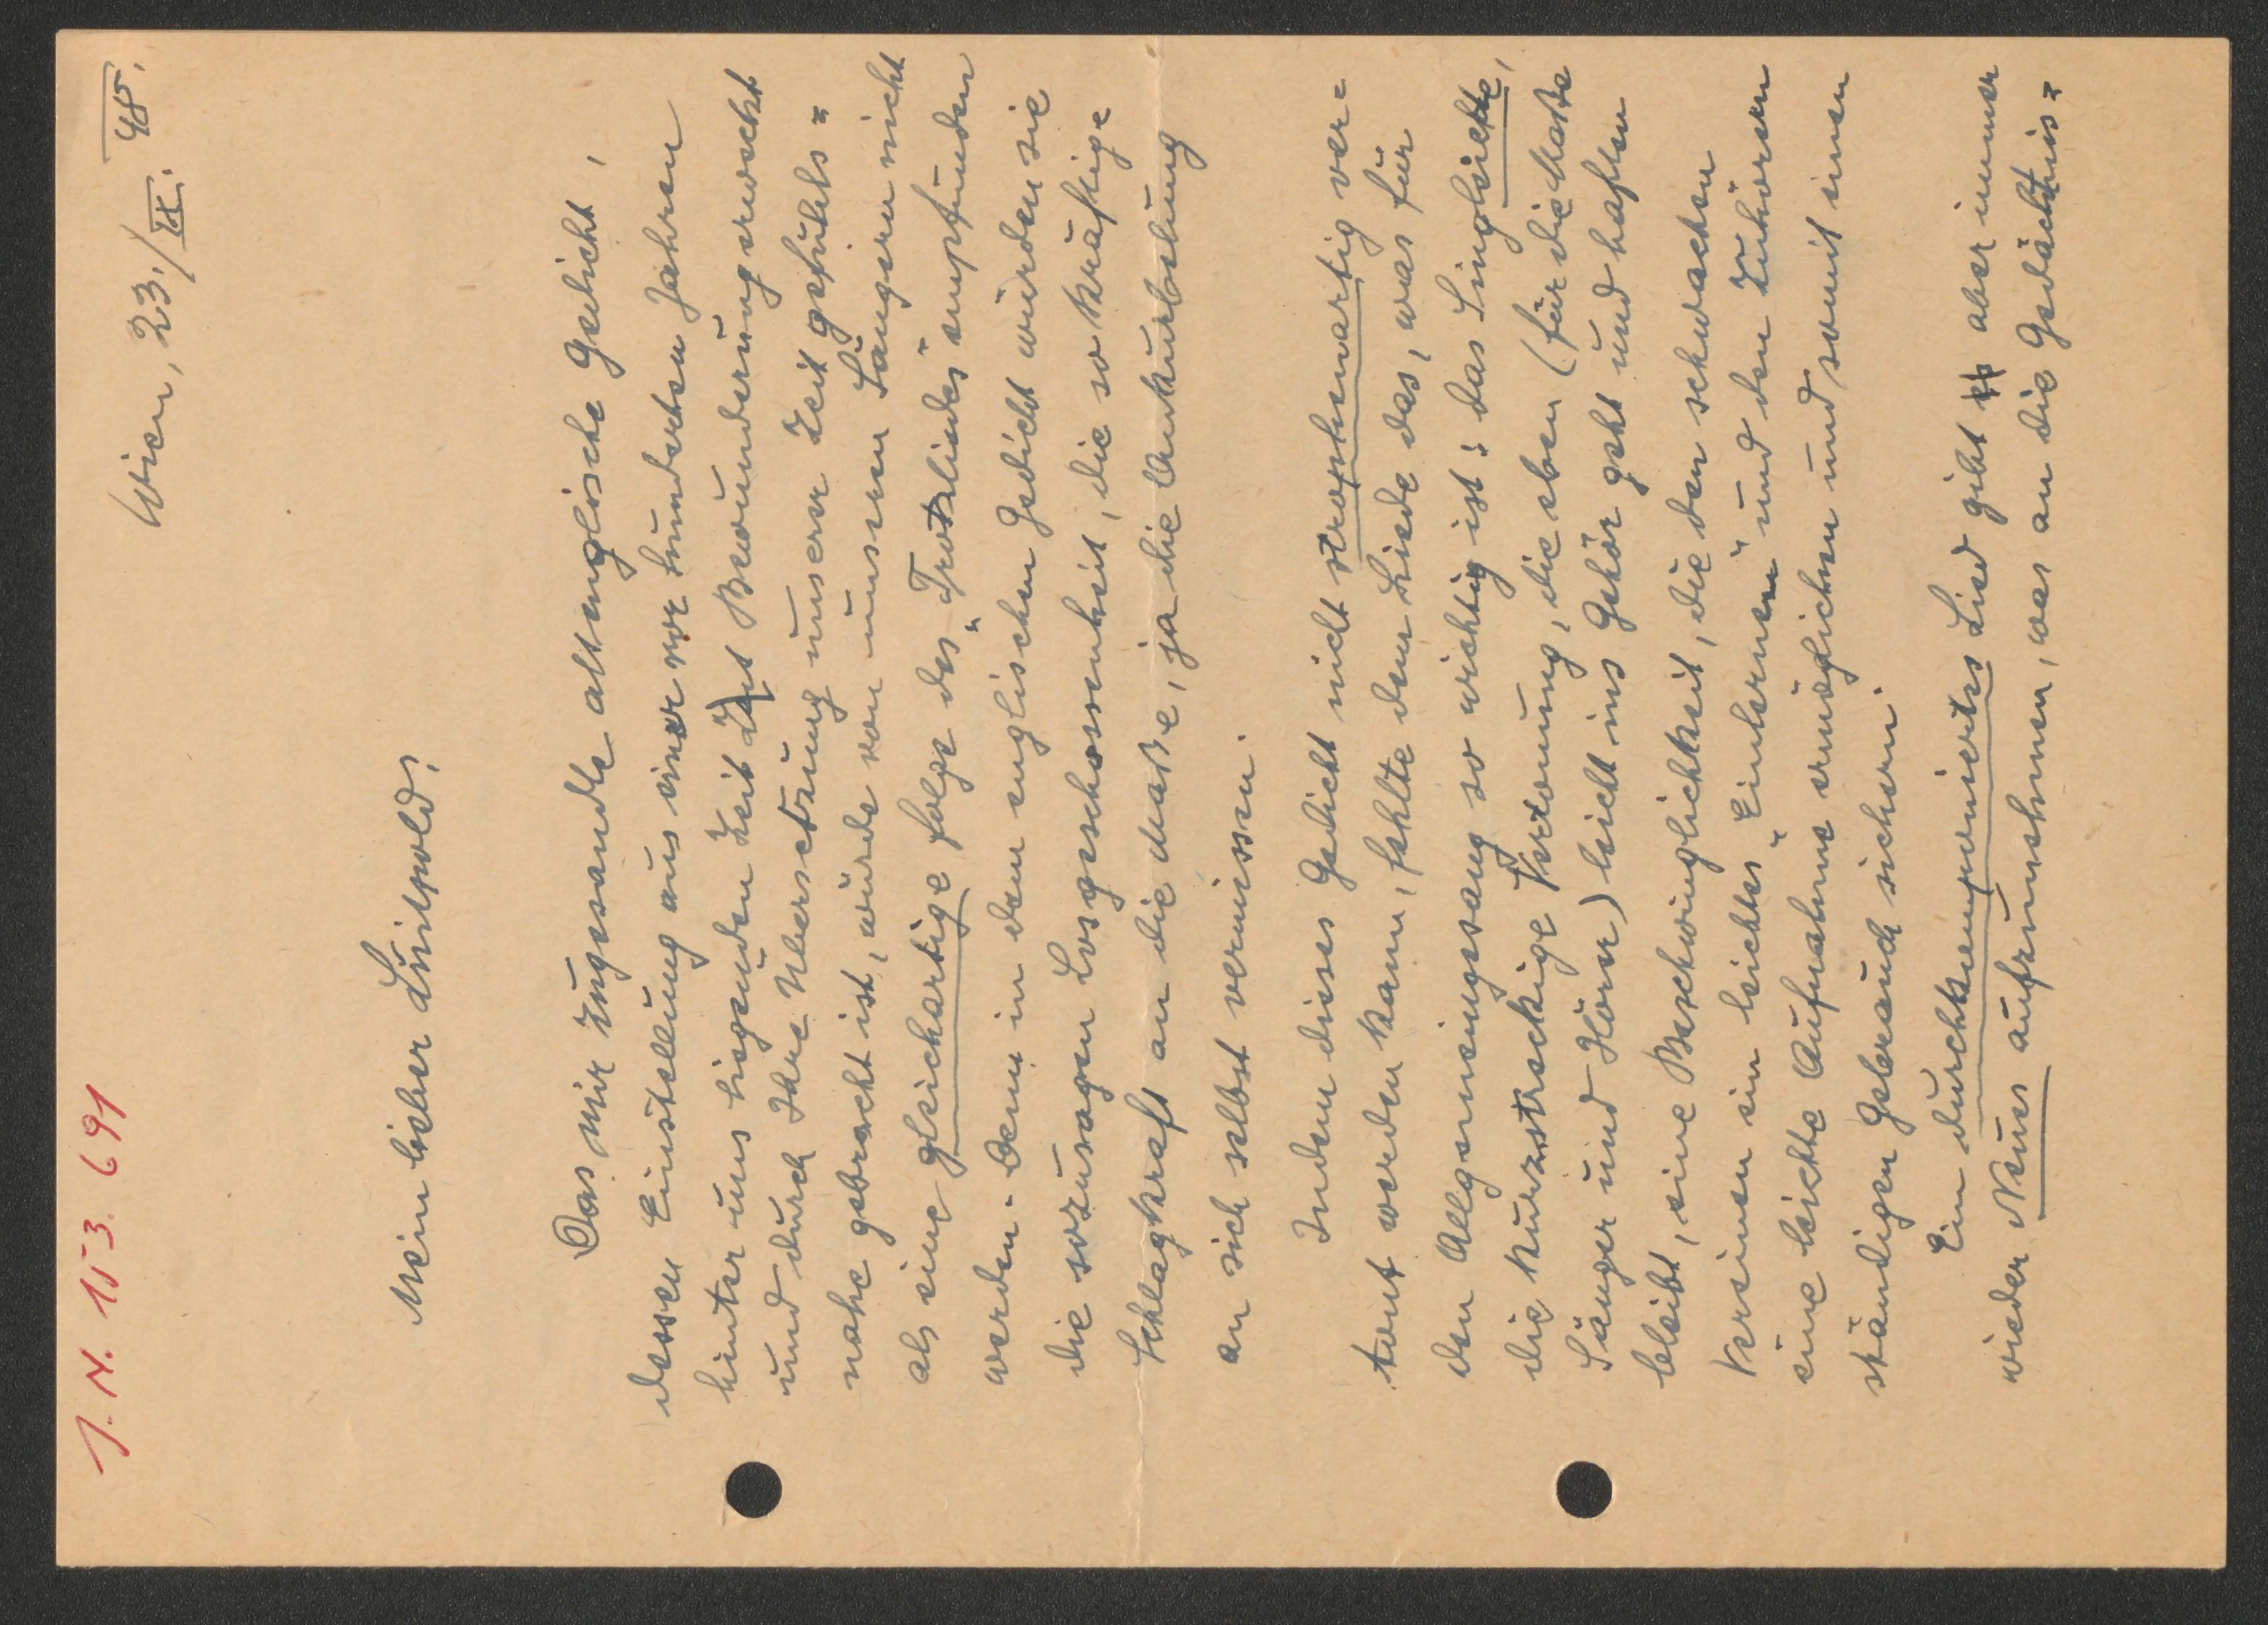 J. N. 153.691
Wien, 23./II. 48.
Mein lieber Luitpold,
Das mir zugesandte altenglische Gedicht,
dessen Einstellung aus einer vor hunderten Jahren
hinter uns liegenden Zeit Bewunderung erweckt
und durch Ihre Übersetzung unserer Zeit gefühls=
nahe gebracht ist, würde von unseren Sängern nicht
als eine gleichartige Folge des „Trotzliedes" empfunden
werden. Denn in dem englischen Gedicht würden sie
die sozusagen Losgeschossenheit, die so kräftige
Schlagkraft an die Masse, ja die Ankurbelung
an sich selbst vermissen.
Indem dieses Gedicht nicht strophenartig ver=
tont werden kann, fehlte dem Liede das, was für
den Allgemeingesang so wichtig ist: das Singleichte,
die kurzstreckige Vertonung, die eben (für die Masse
Sänger und Hörer) leicht ins Gehör geht und haften
bleibt, eine Beschwinglichkeit, die den schwachen
Vereinen ein leichtes „Einlernen" und den Zuhörern
eine leichte Aufnahme ermöglichen und somit einen
ständigen Gebrauch sichern.
Ein durchkomponiertes Lied gibt aber immer
wieder Neues aufzunehmen, was an die Gedächtnis=